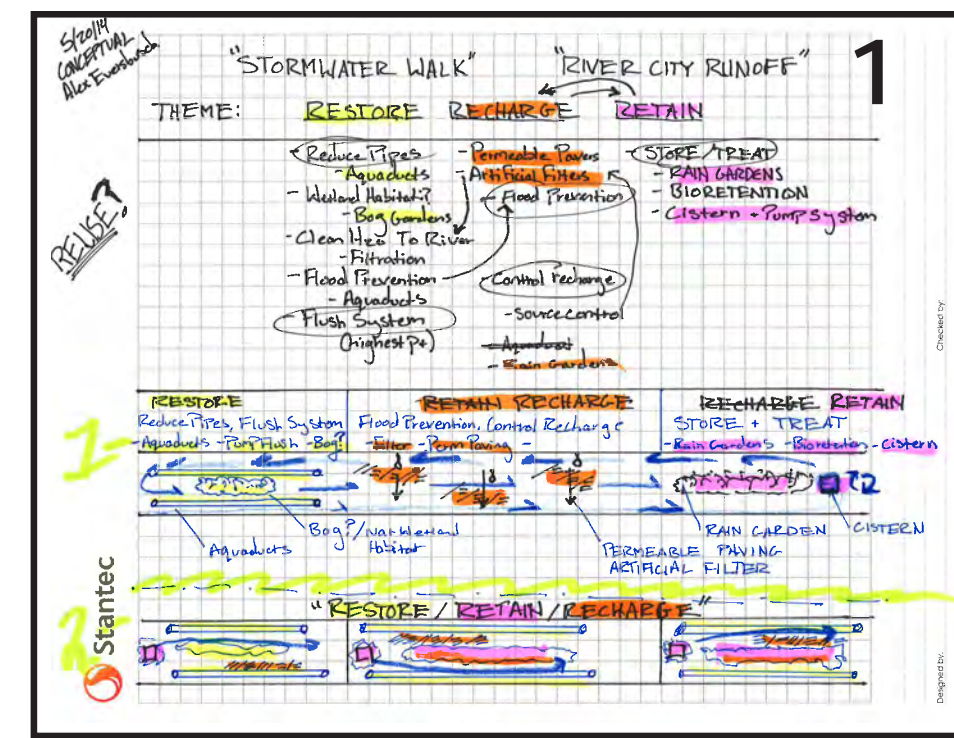 5/20/14
CONCEPTUAL
Alex Eversbusch
1
"STORMWATER WALK" "RIVER CITY RUNOFF"
THEME: RESTORE RECHARGE RETAIN
REUSE?
- Reduce Pipes
- Aquaducts
- Wetland Habitat?
- Bog Gardens
- Clean H2O To River
- Filtration
- Flood Prevention
- Aquaducts
- Flush System
(highest pt)
- Permeable Pavers
- Artificial Filters
- Flood Prevention
- Control recharge
- Source control
- Aquaduct
- Rain Gardens
- STORE/TREAT
- RAIN GARDENS
- BIORETENTION
- Cistern + Pump System
1-
RESTORE
Reduce Pipes, Flush System
- Aquaducts - Pump Flush - Bog?
RETAIN RECHARGE
Flood Prevention, Control Recharge
- Filter - Perm Paving -
RECHARGE RETAIN
STORE + TREAT
- Rain Gardens - Bioretention - Cistern
Aquaducts
Bog?/Nat Wetland
Habitat
PERMEABLE PAVING
ARTIFICIAL FILTER
RAIN GARDEN
CISTERN
2-
"RESTORE/RETAIN/RECHARGE"
Stantec
Checked by:
Designed by: